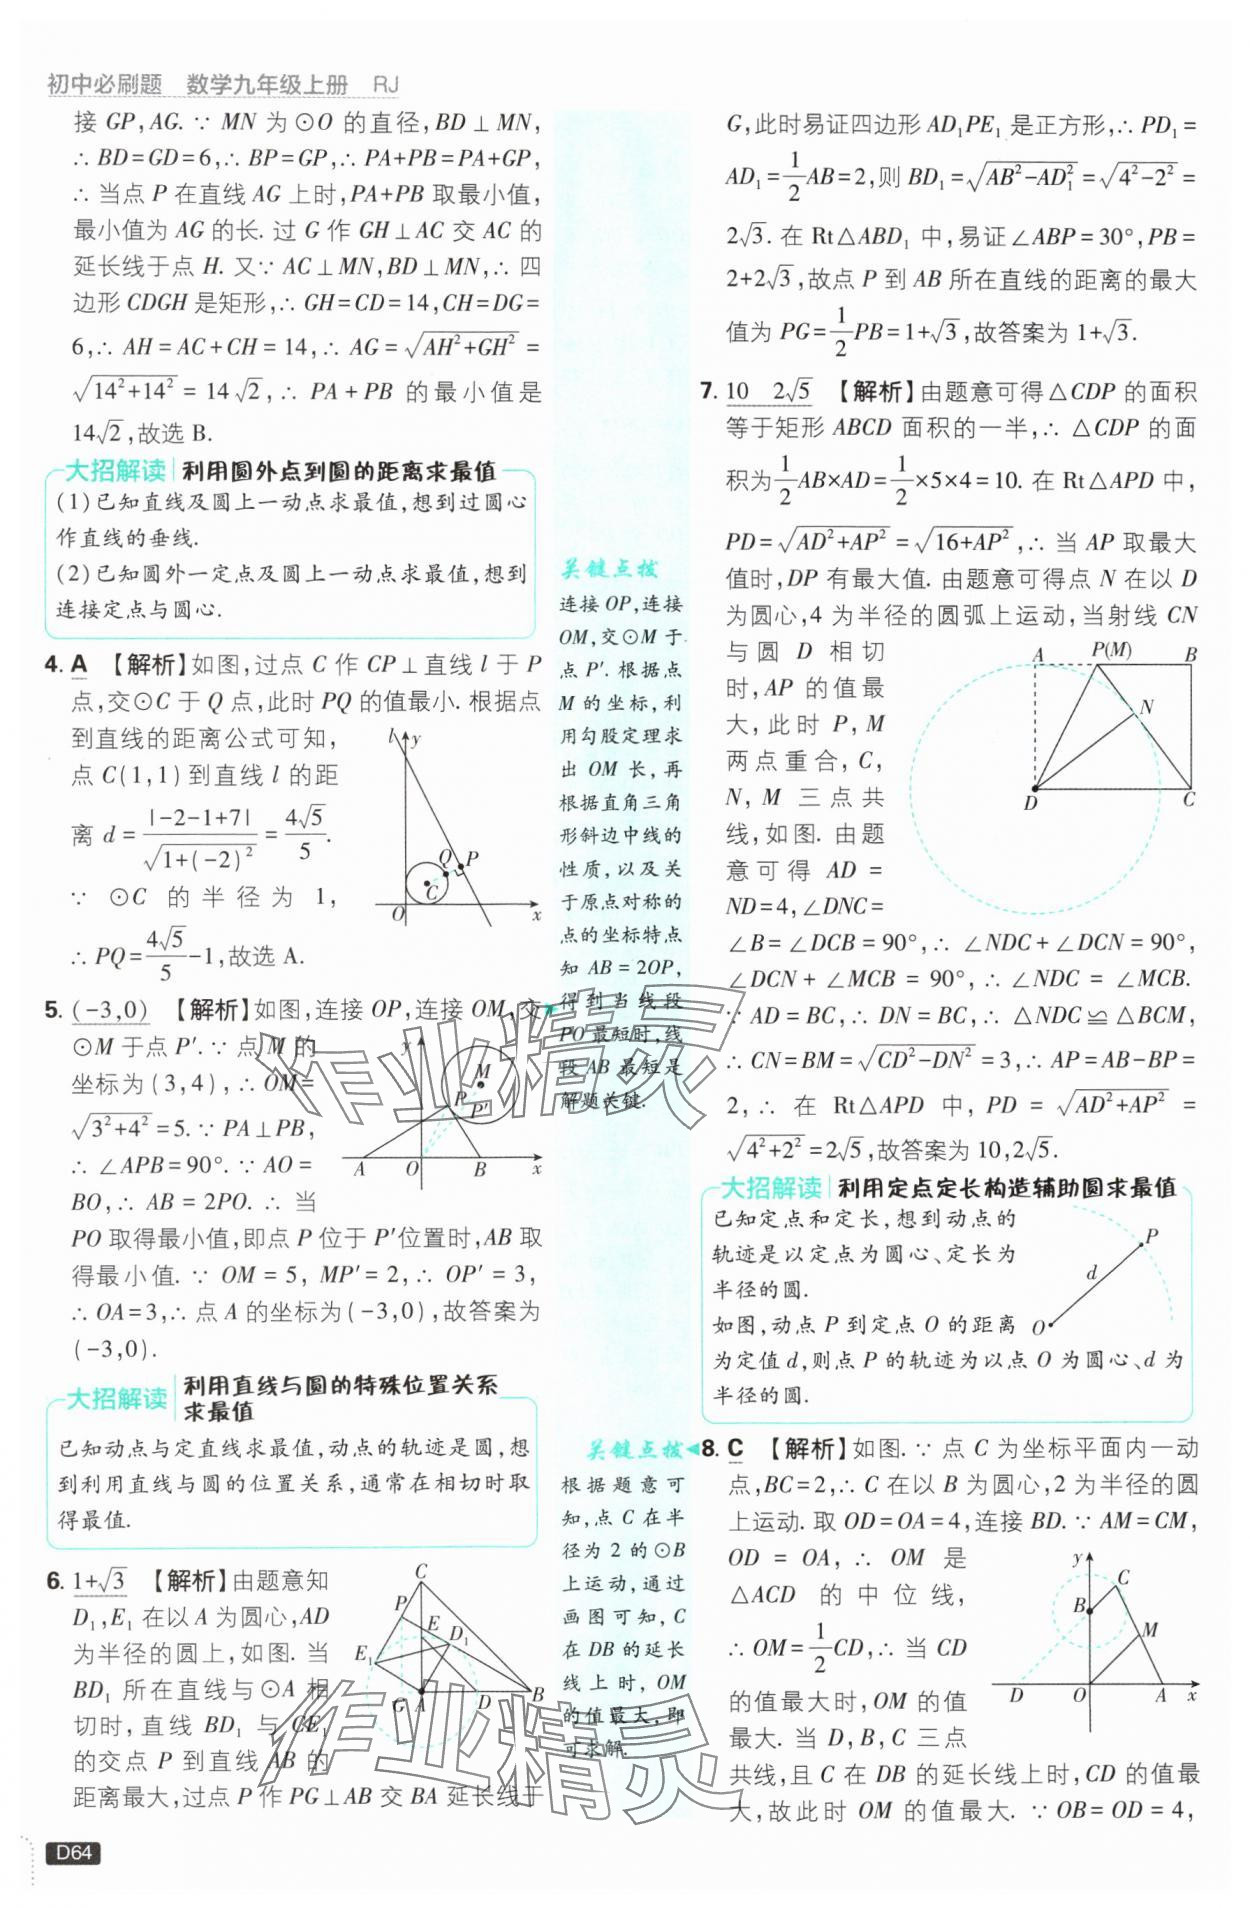 初中必刷题 数学九年级上册 RJ
接 GP,AG. ∵ MN 为 ⊙O 的直径,BD⊥MN,
∴ BD=GD=6,∴ BP=GP,∴ PA+PB=PA+GP,
∴ 当点 P 在直线 AG 上时,PA+PB 取最小值,
最小值为 AG 的长. 过 G 作 GH⊥AC 交 AC 的
延长线于点 H. 又∵ AC⊥MN,BD⊥MN,∴ 四
边形 CDGH 是矩形,∴ GH=CD=14,CH=DG=
6,∴ AH=AC+CH=14,∴ AG=√(AH²+GH²)=
√(14²+14²)=14√2,∴ PA+PB 的最小值是
14√2,故选 B.
大招解读 | 利用圆外点到圆的距离求最值
(1)已知直线及圆上一动点求最值,想到过圆心
作直线的垂线.
(2)已知圆外一定点及圆上一动点求最值,想到
连接定点与圆心.
4. A 【解析】如图,过点 C 作 CP⊥直线 l 于 P
点,交⊙C 于 Q 点,此时 PQ 的值最小. 根据点
到直线的距离公式可知,
点 C(1,1)到直线 l 的距
离 d=|-2-1+7|/√(1+(-2)²)=4√5/5.
∵ ⊙C 的半径为 1,
∴ PQ=4√5/5-1,故选 A.
l y Q P C O x
5. (-3,0) 【解析】如图,连接 OP,连接 OM,交
⊙M 于点 P′. ∵ 点 M 的
坐标为(3,4),∴ OM=
√(3²+4²)=5. ∵ PA⊥PB,
∴ ∠APB=90°. ∵ AO=
BO,∴ AB=2PO. ∴ 当
PO 取得最小值,即点 P 位于 P′位置时,AB 取
得最小值. ∵ OM=5,MP′=2,∴ OP′=3,
∴ OA=3,∴ 点 A 的坐标为(-3,0),故答案为
(-3,0).
y M P P′ A O B x
大招解读 | 利用直线与圆的特殊位置关系
求最值
已知动点与定直线求最值,动点的轨迹是圆,想
到利用直线与圆的位置关系,通常在相切时取
得最值.
6. 1+√3 【解析】由题意知
D₁,E₁ 在以 A 为圆心,AD
为半径的圆上,如图. 当
BD₁ 所在直线与⊙A 相
切时,直线 BD₁ 与 CE₁
的交点 P 到直线 AB 的
距离最大,过点 P 作 PG⊥AB 交 BA 延长线于
C P E D₁ E₁ G A D B
D64
关键点拨
连接 OP,连接
OM,交⊙M 于
点 P′. 根据点
M 的坐标,利
用勾股定理求
出 OM 长,再
根据直角三角
形斜边中线的
性质,以及关
于原点对称的
点的坐标特点
知 AB=2OP,
得到当线段
PO 最短时,线
段 AB 最短是
解题关键.
关键点拨
根据题意可
知,点 C 在半
径为 2 的⊙B
上运动,通过
画图可知,C
在 DB 的延长
线上时,OM
的值最大,即
可求解.
G,此时易证四边形 AD₁PE₁ 是正方形,∴ PD₁=
AD₁=1/2AB=2,则 BD₁=√(AB²-AD₁²)=√(4²-2²)=
2√3. 在 Rt△ABD₁ 中,易证∠ABP=30°,PB=
2+2√3,故点 P 到 AB 所在直线的距离的最大
值为 PG=1/2PB=1+√3,故答案为 1+√3.
7. 10 2√5 【解析】由题意可得△CDP 的面积
等于矩形 ABCD 面积的一半,∴ △CDP 的面
积为1/2AB×AD=1/2×5×4=10. 在 Rt△APD 中,
PD=√(AD²+AP²)=√(16+AP²),∴ 当 AP 取最大
值时,DP 有最大值. 由题意可得点 N 在以 D
为圆心,4 为半径的圆弧上运动,当射线 CN
与圆 D 相切
时,AP 的值最
大,此时 P,M
两点重合,C,
N,M 三点共
线,如图. 由题
意可得 AD=
ND=4,∠DNC=
∠B=∠DCB=90°,∴ ∠NDC+∠DCN=90°,
∠DCN+∠MCB=90°,∴ ∠NDC=∠MCB.
∵ AD=BC,∴ DN=BC,∴ △NDC≌△BCM,
∴ CN=BM=√(CD²-DN²)=3,∴ AP=AB-BP=
2,∴ 在 Rt△APD 中,PD=√(AD²+AP²)=
√(4²+2²)=2√5,故答案为 10,2√5.
A P(M) B N D C
大招解读 | 利用定点定长构造辅助圆求最值
已知定点和定长,想到动点的
轨迹是以定点为圆心、定长为
半径的圆.
如图,动点 P 到定点 O 的距离
为定值 d,则点 P 的轨迹为以点 O 为圆心、d 为
半径的圆.
P d O
8. C 【解析】如图. ∵ 点 C 为坐标平面内一动
点,BC=2,∴ C 在以 B 为圆心,2 为半径的圆
上运动. 取 OD=OA=4,连接 BD. ∵ AM=CM,
OD=OA,∴ OM 是
△ACD 的中位线,
∴ OM=1/2CD,∴ 当 CD
的值最大时,OM 的值
最大. 当 D,B,C 三点
共线,且 C 在 DB 的延长线上时,CD 的值最
大,故此时 OM 的值最大. ∵ OB=OD=4,
y C B M D O A x
作业精灵
作业精灵